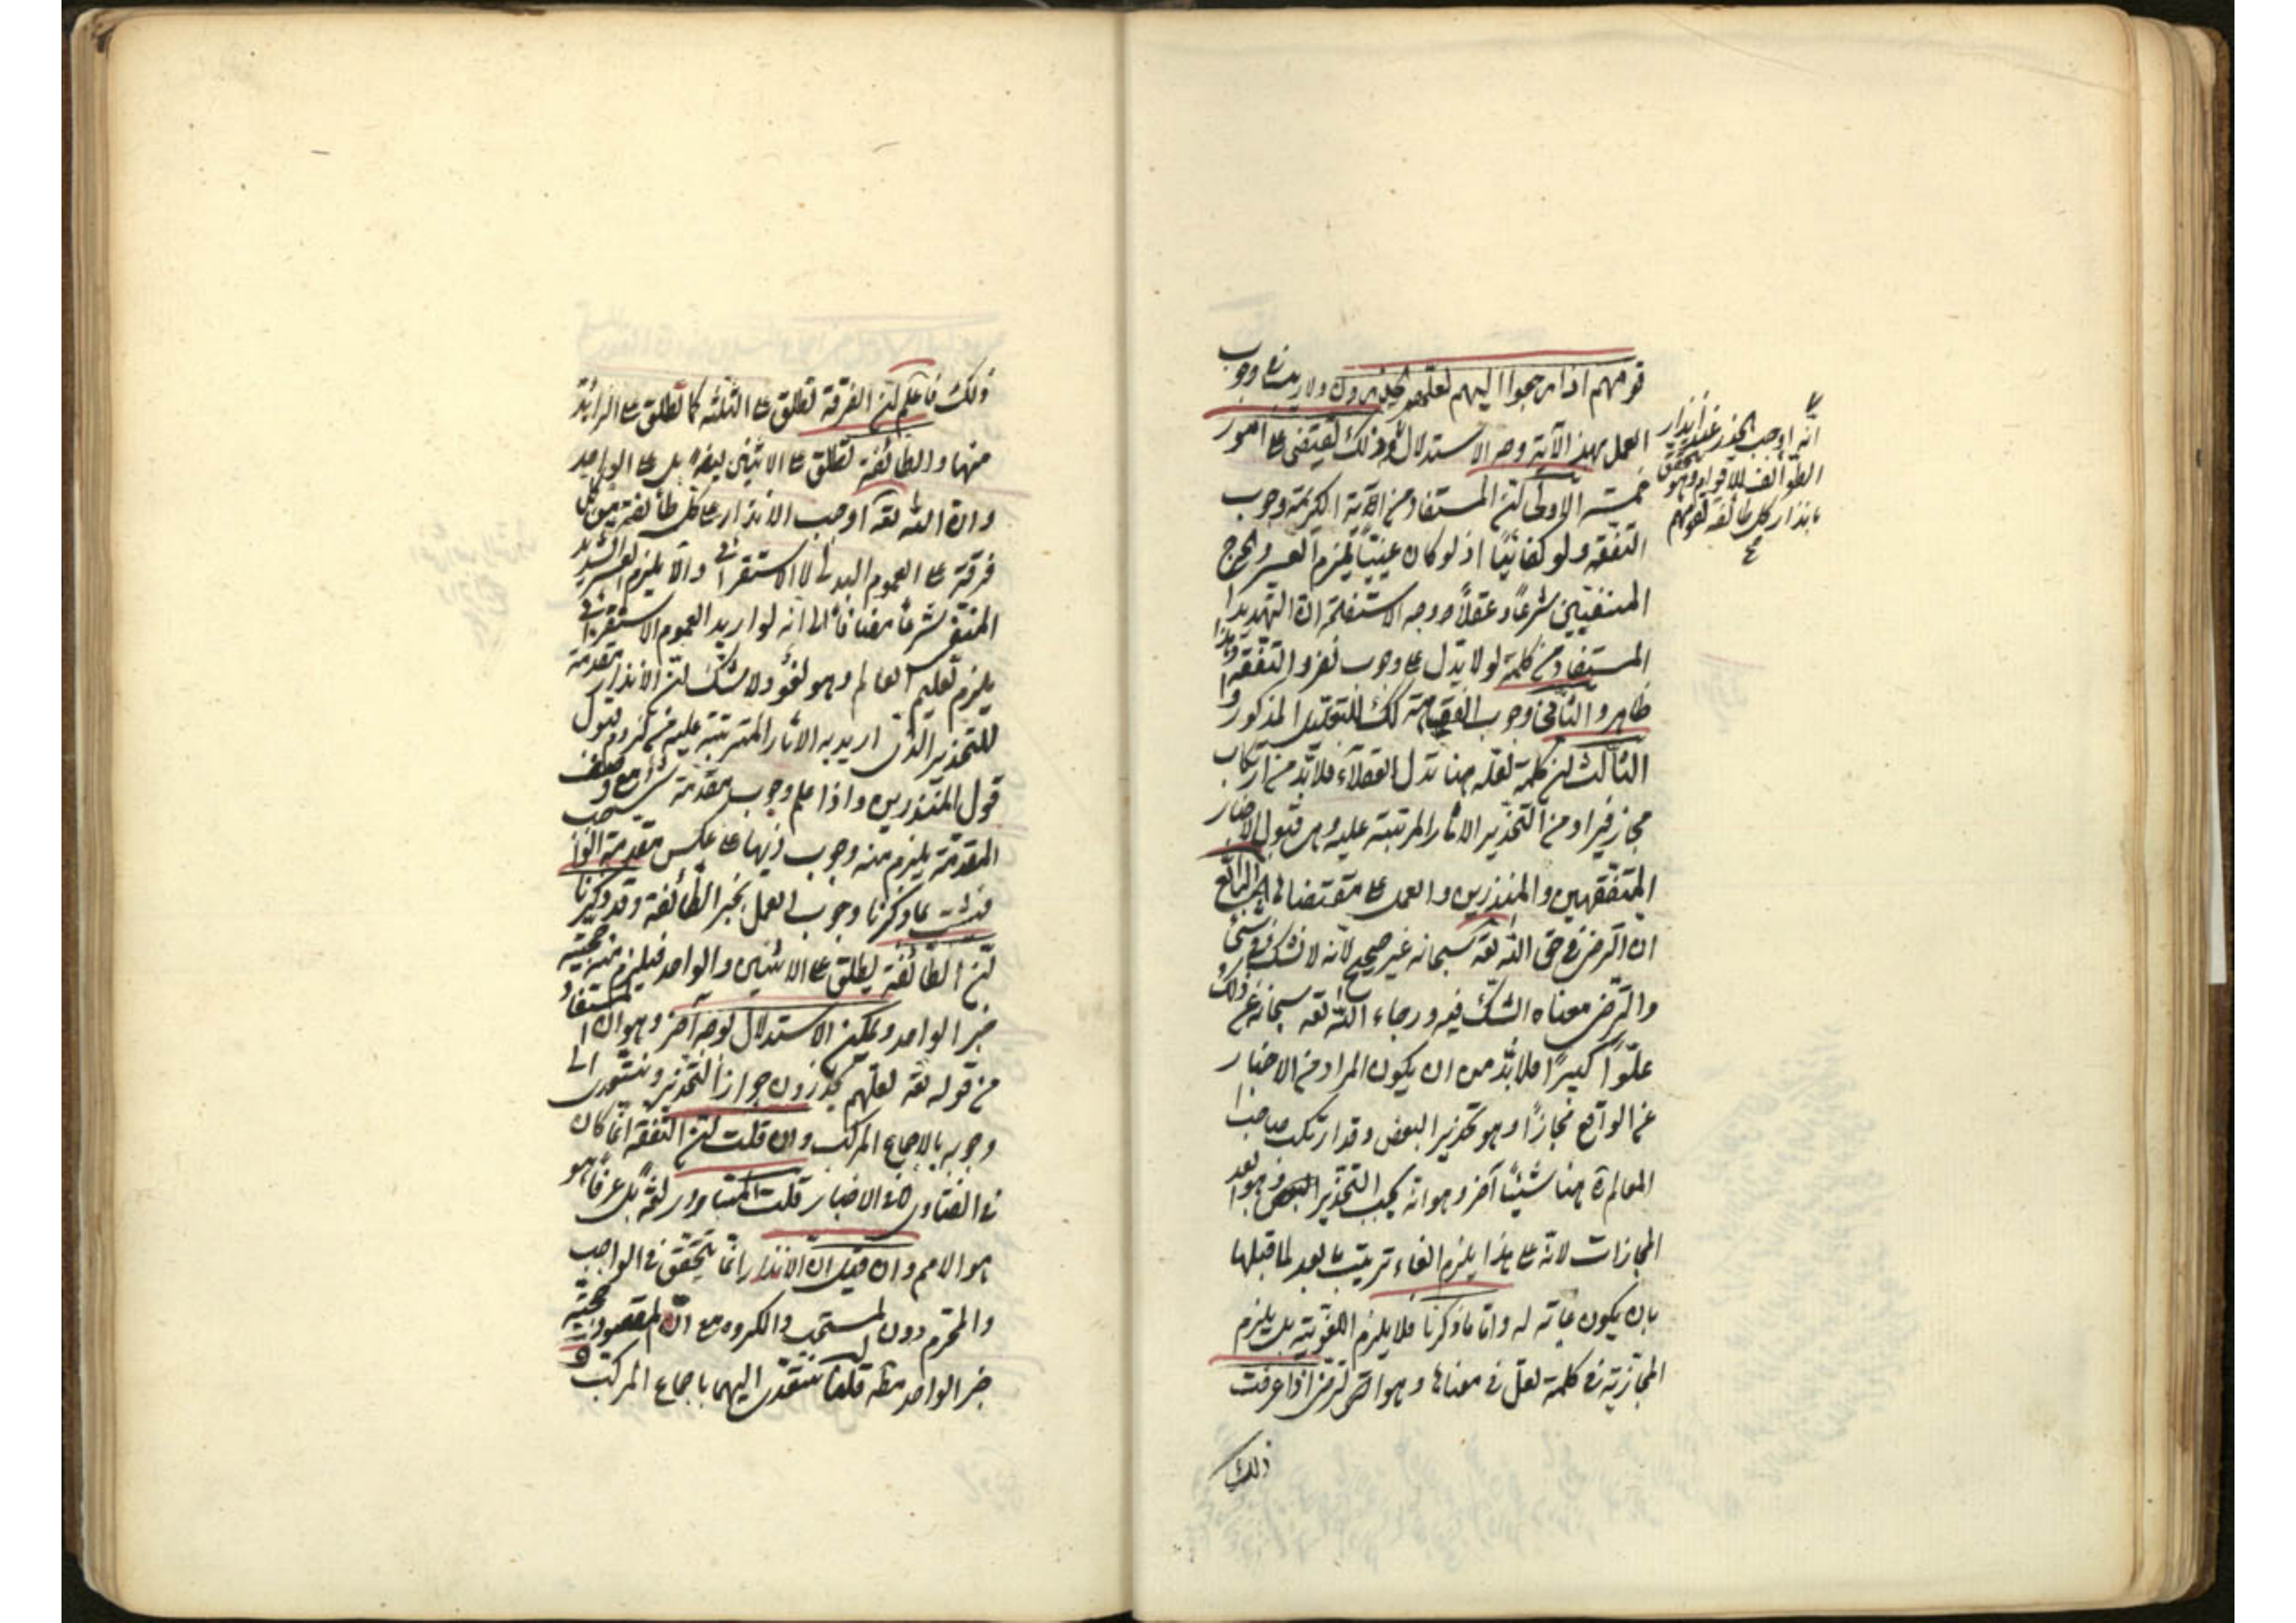 قومهم اذا رجعوا اليهم لعلهم يحذرون ولا ريب في وجوب
العمل بهذه الآية وجه الاستدلال وذلك يقتضي على امور
خمسة الاولى ان المستفاد من الآية الكريمة وجوب
التفقه ولو كفائيا اذ لو كان عينيا يلزم العسر والحرج
المنفيين شرعا وعقلا ووجه الاستفادة ان التهديد
المستفاد من كلمة لولا يدل على وجوب نفر والتفقه وهذا
ظاهر والثاني وجوب كك للتعليل المذكور و
الثالث ان كلمة لعل هنا تدل فلا بد من ارتكاب
مجاز فيراد من التحذير الاثار المرتبة عليه وهي قبول الاخبار
المتفقهين والمنذرين والعمل على مقتضاها الرابع
ان الترجي في حق الله تعه سبحانه غير صحيح لانه لا شك في شئ
والترجي معناه الشك فيه ورجاء الله تعه سبحانه عن ذلك
علوا كبيرا فلا بد من ان يكون المراد من الاخبار
عن الواقع مجازا وهو تحذير البعض وقد ارتكب صاحب
المعالم هنا شيئا آخر وهو انه يجب التحذير وهو ابعد
المجازات لانه على هذا يلزم الغاء ترتيب ما بعد لما قبلها
بان يكون غاية له واما ما ذكرنا فلا يلزم اللغوية بل يلزم
المجازية في كلمة لعل في معناها وهو الترجي اذا عرفت
ذلك
انه اوجب الحذر عند انذار
الطوائف للاقوام وهو يتحقق
بانذار كل طائفة لقومهم
ذلك فاعلم ان الفرقة تطلق على الثلثة كما تطلق على الزائد
منها والطائفة تطلق على الاثنين ايضا بل على الواحد
وان الله تعه اوجب الانذار على كل طائفة من كل
فرقة على العموم البدلي لا الاستغراقي والا يلزم العسر الشديد
المنفي شرعا مضافا الى انه لو اريد العموم الاستغراقي
يلزم تعليم العالم وهو لغو ولا شك ان الانذار مقدمة
للتحذير الذي اريد به الاثار المترتبة عليه من لزوم قبول
قول المنذرين واذا علم وجوب مقدمة
المقدمة يلزم منه وجوب ذيها على عكس مقدمة الواجب
فثبت بما ذكرنا وجوب العمل بخبر الطائفة وقد ذكرنا
ان الطائفة يطلق على الاثنين والواحد فيلزم منه حجية
خبر الواحد ويمكن الاستدلال بوجه آخر وهو ان المستفاد
من قوله تعه لعلهم يحذرون جواز التحذير ونتعدى الى
وجوبه بالاجماع المركب وان قلت ان التفقه انما كان
في الفتاوى لا في الاخبار قلت المتبادر لغة بل عرفا هو
هو الاعم وان قيل ان الانذار انما يتحقق في الواجب
والمحرم دون المستحب والمكروه مع ان المقصود حجية
خبر الواحد مطه قلنا نتعدى اليهما باجماع المركب و